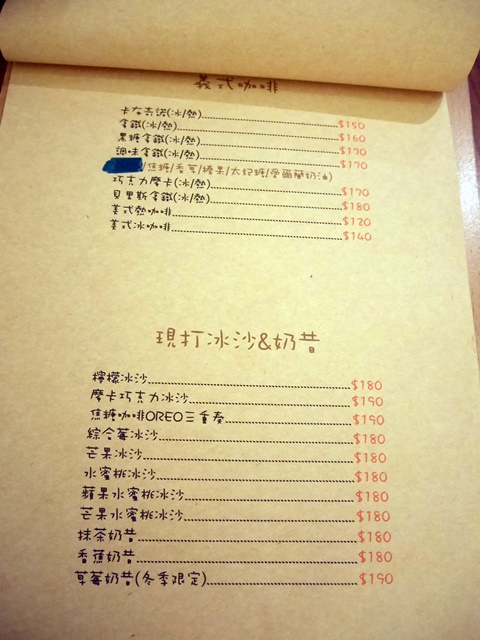 義式咖啡
卡布奇諾(冰/熱)......$150
拿鐵(冰/熱)......$160
黑糖拿鐵(冰/熱)......$170
調味拿鐵(冰/熱)......$170
/焦糖/香草/榛果/太妃糖/愛爾蘭奶油)
巧克力摩卡(冰/熱)......$170
貝里斯拿鐵(冰/熱)......$180
美式熱咖啡......$120
美式冰咖啡......$140
現打冰沙&奶昔
檸檬冰沙......$180
摩卡巧克力冰沙......$190
焦糖咖啡OREO三重奏......$190
綜合莓冰沙......$180
芒果冰沙......$180
水蜜桃冰沙......$180
蘋果水蜜桃冰沙......$180
芒果水蜜桃冰沙......$180
抹茶奶昔......$180
香蕉奶昔......$180
草莓奶昔(冬季限定)......$190